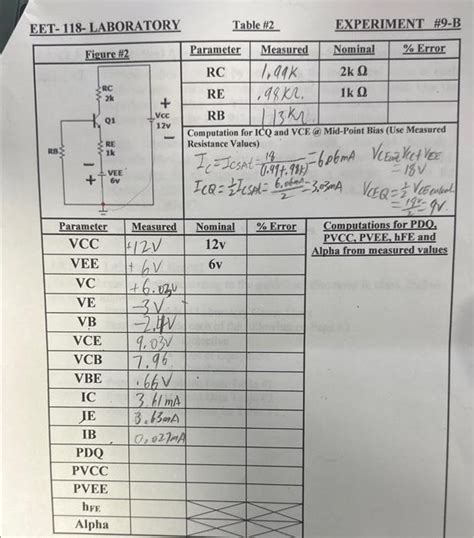 EET- 118- LABORATORY Table #2 EXPERIMENT #9-B
Figure #2 Parameter Measured Nominal % Error
RC 1.99K 2k Ω
RE .98KΩ 1k Ω
RB 113KΩ
RC
2k
Q1
+
Vcc
12v
RB
RE
1k
VEE
6v
+
Computation for ICQ and VCE @ Mid-Point Bias (Use Measured
Resistance Values)
IC=ICSAt= 18/(1.99+.98k) =6.06mA VCEcutoff=VCC+VEE
=18V
ICQ=1/2 ICSAt= 6.06mA/2 =3.03mA VCEQ=1/2 VCEcutoff
=18v/2=9v
Parameter Measured Nominal % Error Computations for PDQ,
PVCC, PVEE, hFE and
Alpha from measured values
VCC +12V 12v
VEE +6V 6v
VC +6.03v
VE -3V
VB -2.4V
VCE 9.03V
VCB 7.96
VBE .66V
IC 3.61mA
IE 3.63mA
IB 0.027mA
PDQ
PVCC
PVEE
hFE
Alpha